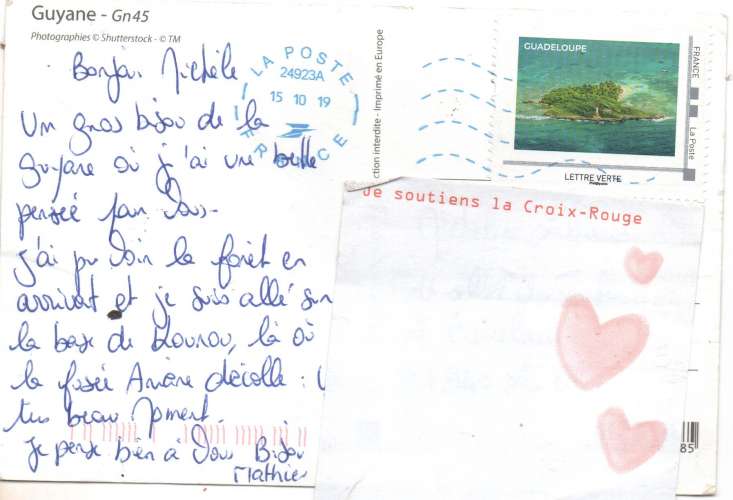 Guyane - Gn45
Photographies © Shutterstock - © TM
Bonjour Michèle
Un gros bijou de la
Guyane où j'ai une belle
pensée pour vous.
J'ai pu voir la forêt en
arrivant et je suis allé sur
la base de Kourou, là où
la fusée Ariane décolle :
très beau moment.
Je pense bien à vous Bijou
Mathieu
LA POSTE
24923A
15 10 19
FRANCE
ction interdite - Imprimé en Europe
GUADELOUPE
FRANCE
La Poste
LETTRE VERTE
Je soutiens la Croix-Rouge
85